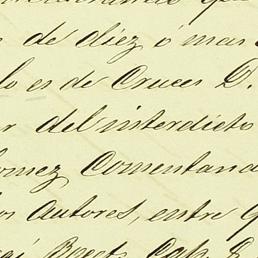 de diez ó mas
lo es de Cruces D.
r del interdicto
omez Comentand
os autores, entre q
Cap. 8